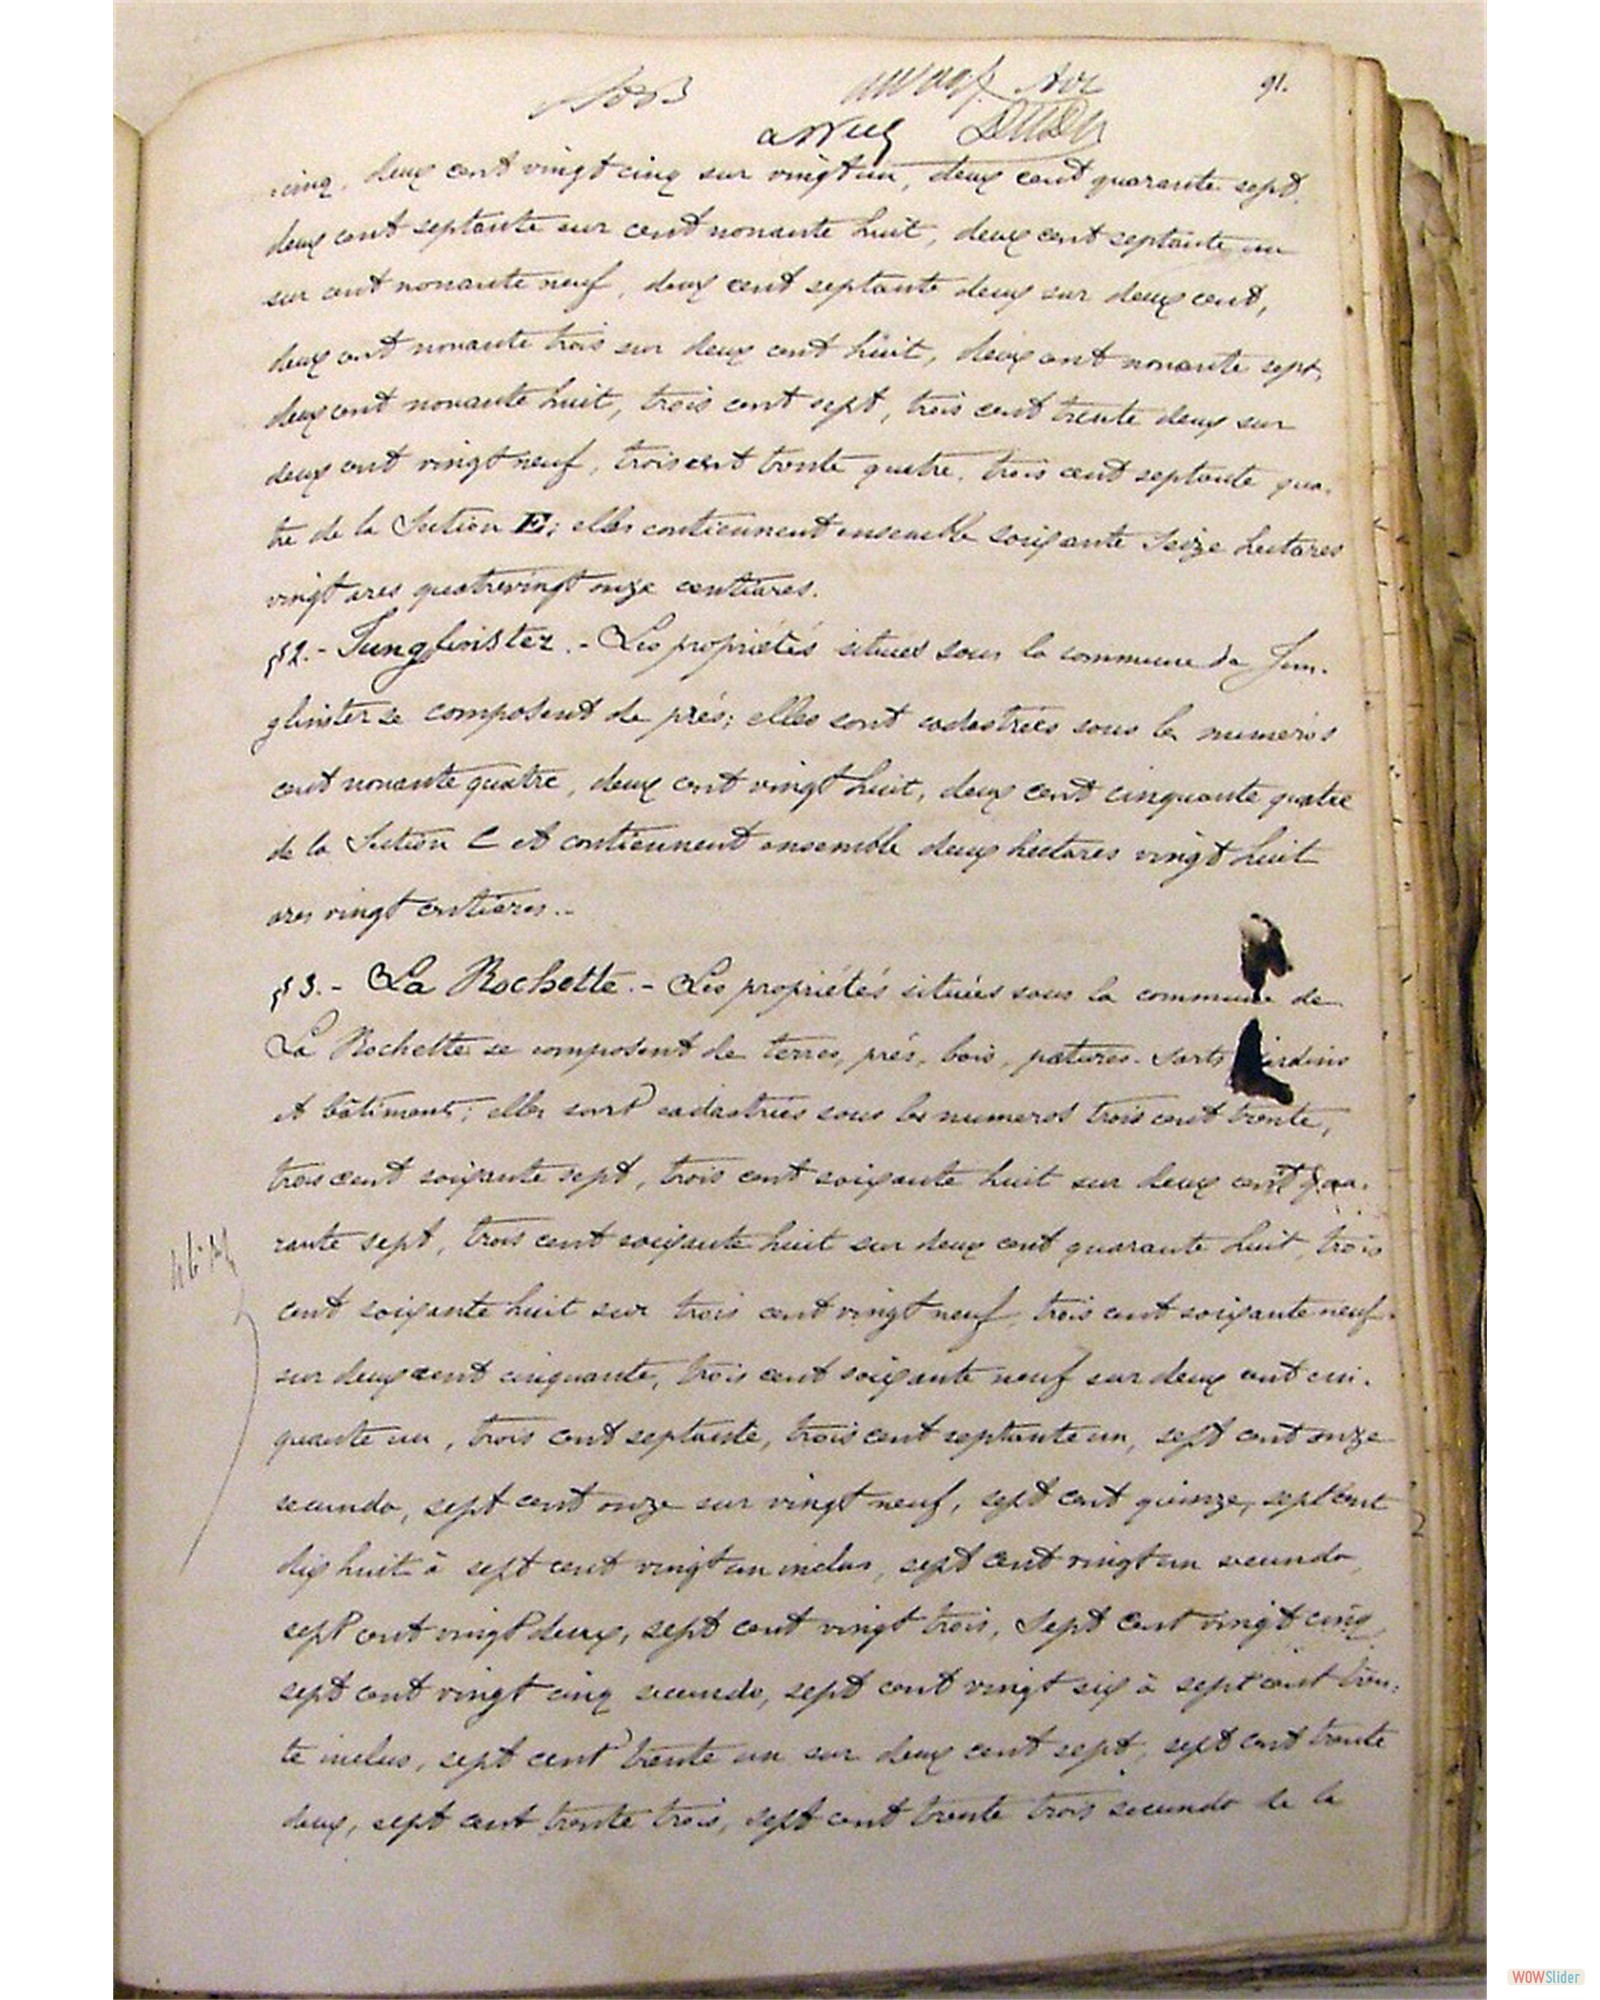 91.
cinq, deux cent vingt cinq sur vingt un, deux cent quarante sept,
deux cent septante sur cent nonante huit, deux cent septante un
sur cent nonante neuf, deux cent septante deux sur deux cent,
deux cent nonante trois sur deux cent huit, deux cent nonante sept,
deux cent nonante huit, trois cent sept, trois cent trente deux sur
deux cent vingt neuf, trois cent trente quatre, trois cent septante qua-
tre de la Section E; elles contiennent ensemble soixante seize hectares
vingt ares quatrevingt onze centiares.
§2.- Junglinster.- Les propriétés situées sous la commune de Jun-
glinster se composent de prés; elles sont cadastrées sous les numéros
cent nonante quatre, deux cent vingt huit, deux cent cinquante quatre
de la Section C et contiennent ensemble deux hectares vingt huit
ares vingt centiares.-
§3.- La Rochette.- Les propriétés situées sous la commune de
La Rochette se composent de terres, prés, bois, patures. Sarts jardins
et bâtiments; elles sont cadastrées sous les numeros trois cent trente,
trois cent soixante sept, trois cent soixante huit sur deux cent qua-
rante sept, trois cent soixante huit sur deux cent quarante huit, trois
cent soixante huit sur trois cent vingt neuf, trois cent soixante neuf
sur deux cent cinquante, trois cent soixante neuf sur deux cent cin-
quante un, trois cent septante, trois cent septante un, sept cent onze
secundo, sept cent onze sur vingt neuf, sept cent quinze, sept cent
dix huit à sept cent vingt un inclus, sept cent vingt un secundo,
sept cent vingt deux, sept cent vingt trois, sept cent vingt cinq,
sept cent vingt cinq secundo, sept cent vingt six à sept cent tren-
te inclus, sept cent trente un sur deux cent sept, sept cent trente
deux, sept cent trente trois, sept cent trente trois secundo de la
WOWSlider